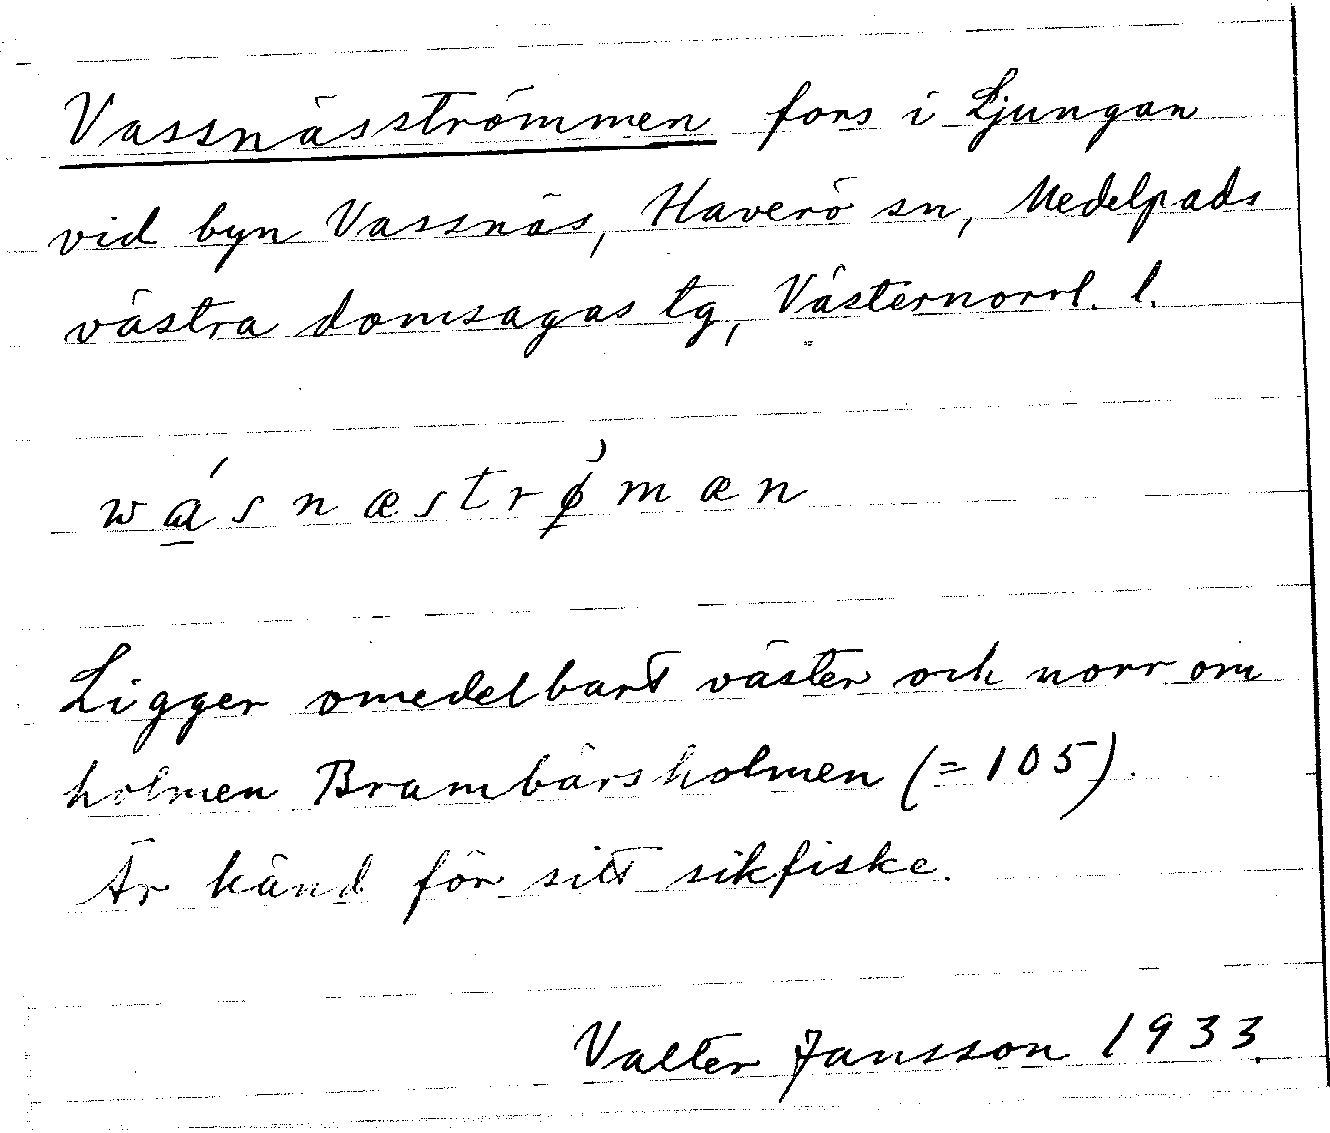 Vassnäsströmmen fors i Ljungan
vid byn Vassnäs, Haverö sn, Medelpads
västra domsagas tg, Västernorrl. l.
wásnæstrǿmæn
Ligger omedelbart väster och norr om
holmen Brambärsholmen (= 105).
Är känd för sitt sikfiske.
Valter Jansson 1933.